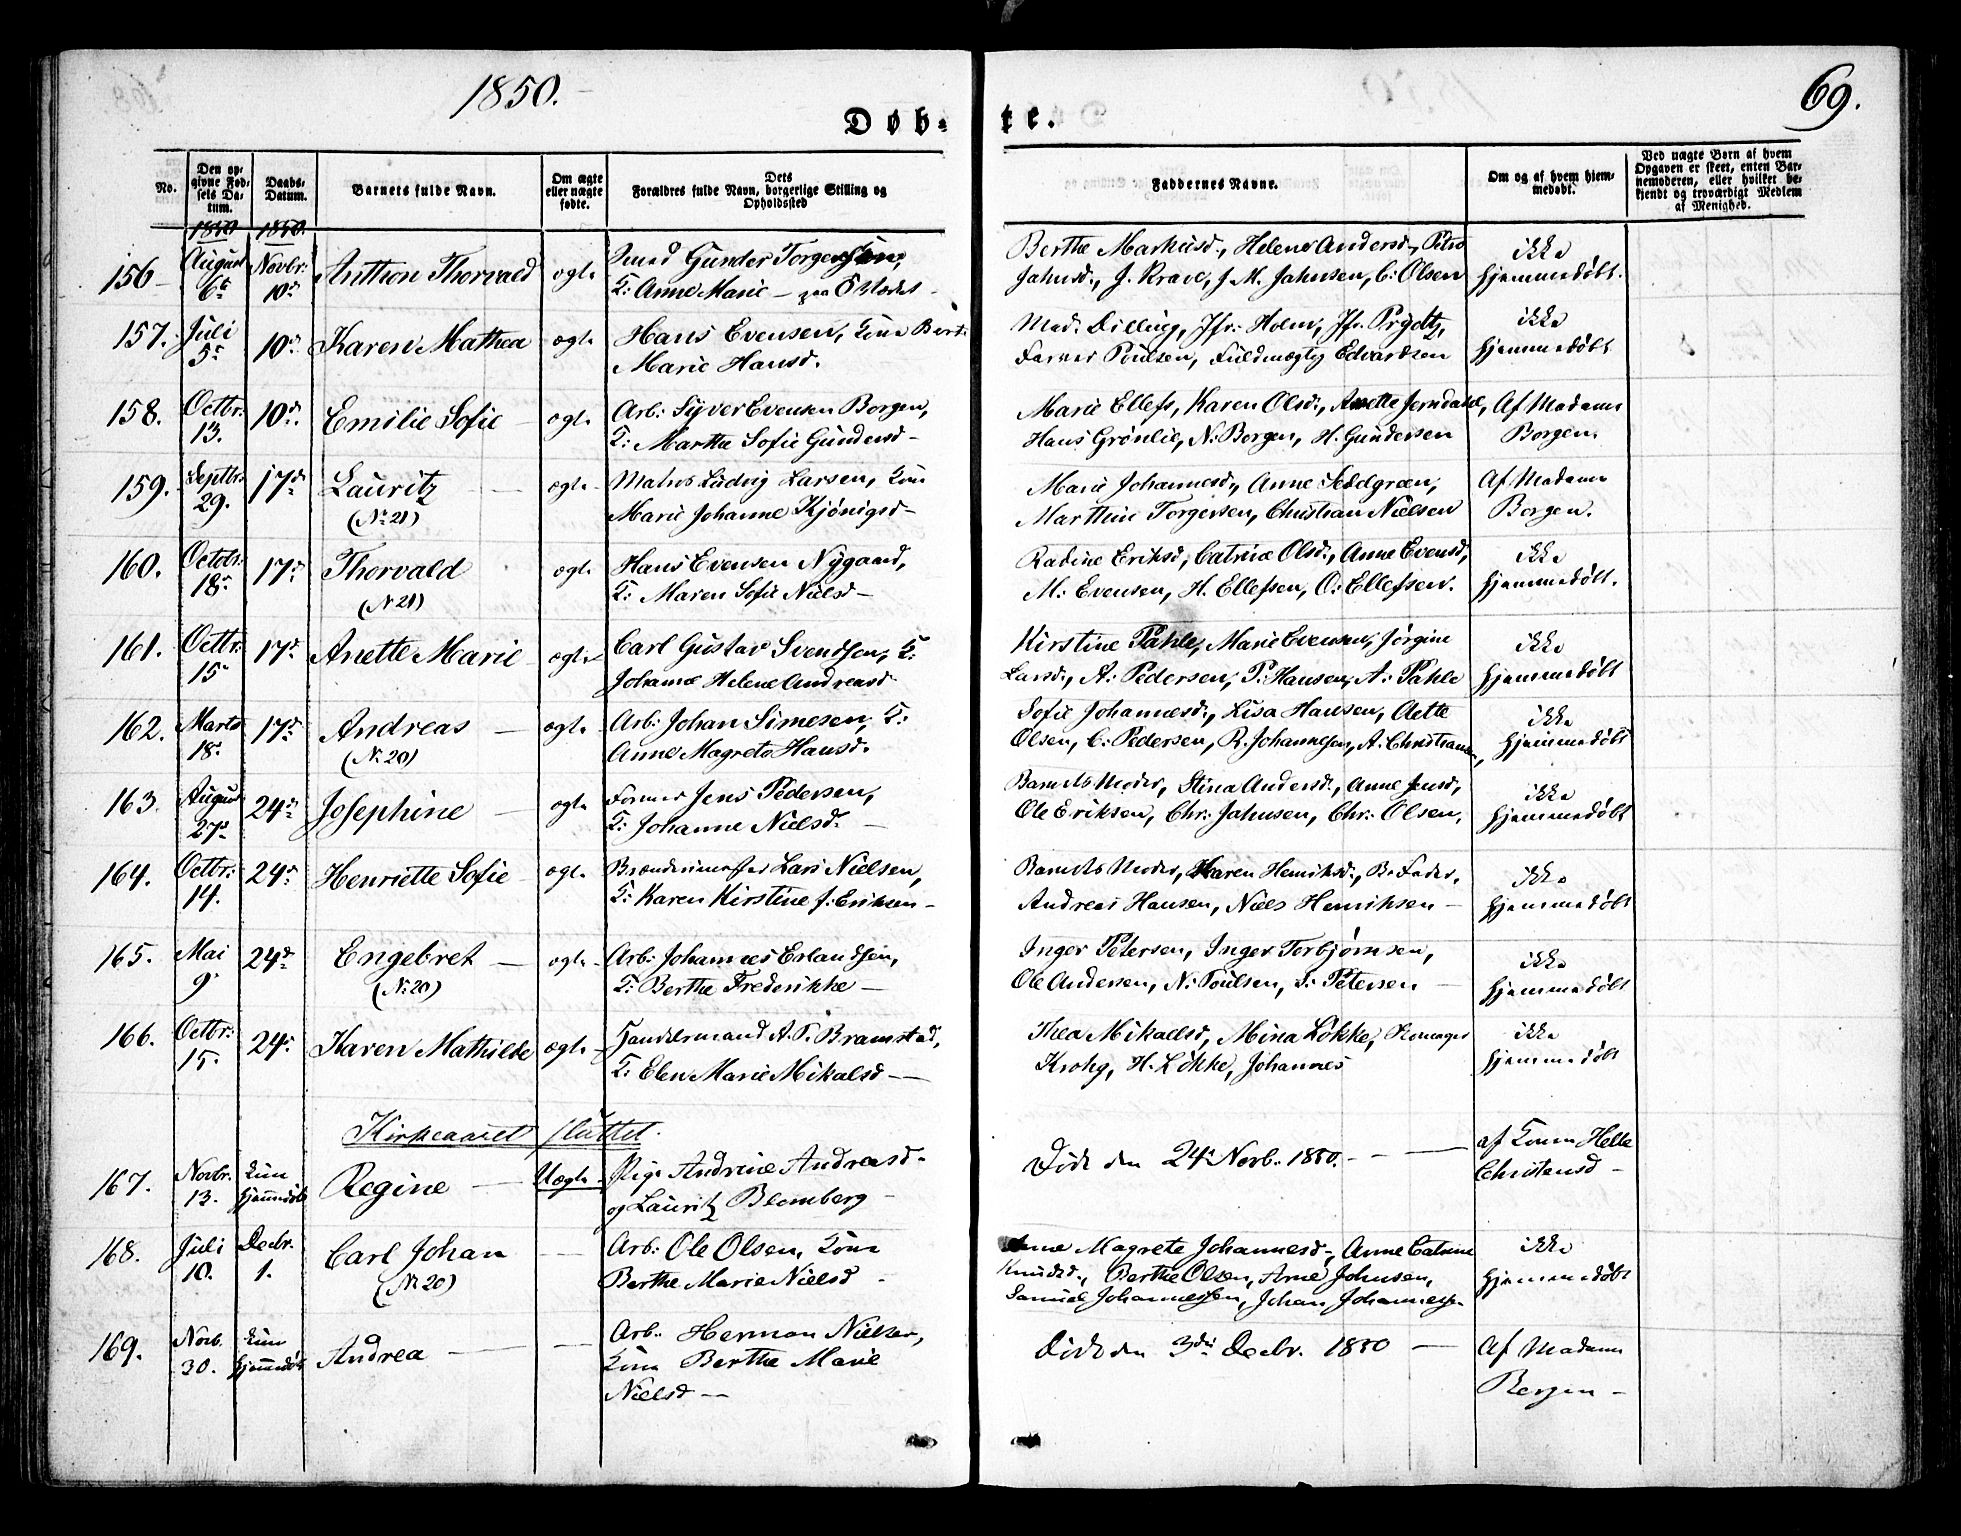 1850.
69.
Døb-
te.
No.
Den op-
givne Fød-
sels Da-
tum.
Daabs-
Datum.
Barnets fulde Navn.
Om ægte
eller uægte
fødte.
Dets
Forældres fulde Navn, borgerlige Stilling og
Opholdssted
Faddernes Navne.
Om og af hvem hjem-
medøbt.
Ved uægte Børn af hvem
Opgaven er skeet, enten Bar-
nemoderen, eller hvilket be-
kjendt og troværdigt Medlem
af Menighed.
1850 1850.
156 August 6te Novbr: 10de Anthon Thorvald ægte Smed Gunder Torgersen,
K: Anne Marie – paa Østodet
Berthe Markusd., Helene Andersd., Petro
Jahnsd., J. Krave, J. M. Jahnsen, C: Olsen
ikke
hjemmedøbt.
157. Juli 5te 10de Karen Mathea ægte Hans Evensen, Kone Berte
Marie Hansd.
Mad. Dilling, Jfr: Holm, Jfr. Prydtz,
Farver Poulsen, Fuldmægtig Edvardsen
ikke
hjemmedøbt
158. Octbr: 13. 10de Emilie Sofie ægte Arb: Syver Evensen Borgen,
K: Marthe Sofie Gundersd –
Marie Ellefs, Karen Olsd., Anette Jerndahl,
Hans Grønlie, N: Borgen, H. Gundersen
Af Madame
Borgen.
159. Septbr: 29. 17de Lauritz ægte Matros Ludvig Larsen, Kone
(No 21) Marie Johanne Kjønigsd –
Marie Johannesd., Anne Seddelgreen,
Marthine Torgersen, Christian Nielsen
Af Madame
Borgen.
160. Octobr: 18de 17de Thorvald ægte Hans Evensen Nygaard,
(No 21) K: Maren Sofie Nielsd –
Radine Eriksd, Catrine Olsd., Anne Evensd,
M: Evensen, H. Ellefsen, O: Ellefsen.
ikke
hjemmedøbt.
161. Octbr: 15 17de Anette Marie ægte Carl Gustav Svendsen, K:
Johanne Helene Andreasd
Kirstine Pahle, Marie Evensen, Jørgine
Larsd., A: Pedersen, P: Hansen, A: Pahle
ikke
hjemmedøbt
162. Marts 18de 17de Andreas – ægte Arb: Johan Simesen, K:
(No 20) Anne Magrete Hansd.
Sofie Johannesd., Lisa Hansen, Aette
Olsen, C: Pedersen, R. Johannesen, A: Christiansen,
ikke
hjemmedøbt
163. August 27de 24de Josephine – ægte Former Jens Pedersen,
K: Johanne Nielsd. –
Barnets Moder, Stina Andersd., Anne Jensd,
Ole Eriksen, Chr: Jahnsen, Chr: Olsen.
ikke
hjemmedøbt
164. Octbr: 14. 24de Henriette Sofie – ægte Brændevinsmester Lars Nielsen,
K: Karen Kirstine f: Eriksen –
Barnets Moder, Karen Henriksd., B. Fader,
Andreas Hansen, Niels Henriksen –
ikke
hjemmedøbt
165. Mai 9 24de Engebret – ægte Arb: Johannes Erlandsen,
(No 20) K: Berthe Frederikke –
Inger Petersen, Inger Torbjørnsen,
Ole Andersen, N: Poulsen, S: Petersen –
ikke
hjemmedøbt
166. Octbr: 15. 24de Karen Mathilde ægte Handelsmand A. P. Bramstad,
K: Elen Marie Mikalsd –
Thea Mikaelsd, Mina Løkke,
Krohg, H. Løkke, Johannes
ikke
hjemmedøbt
Kirkeaaret sluttet.
167. Novbr. 13. kun hjemmedøbt Regine – Uægte Pige Andrine Andreasd –
og Lauritz Blomberg –
Døde den 24de Novb. 1850. – –
af Konen Helle
Christensd –
168. Juli 10. Decbr. 1. Carl Johan – Arb: Ole Olsen, Kone
(No 20) Berthe Marie Nielsd –
Anne Magrete Johannesd., Anne Catrine
Knudsd., Berthe Olsen, Arne Johnsen,
Samuel Johannessen, Johan Johannessen
ikke
hjemmedøbt
169. Novb. 30. kun hjemmedøbt Andrea – Arb. Herman Nielsen,
Kone Berthe Marie
Nielsd –
Døde den 3die Decbr. 1850 –
Af Madame
Borgen –